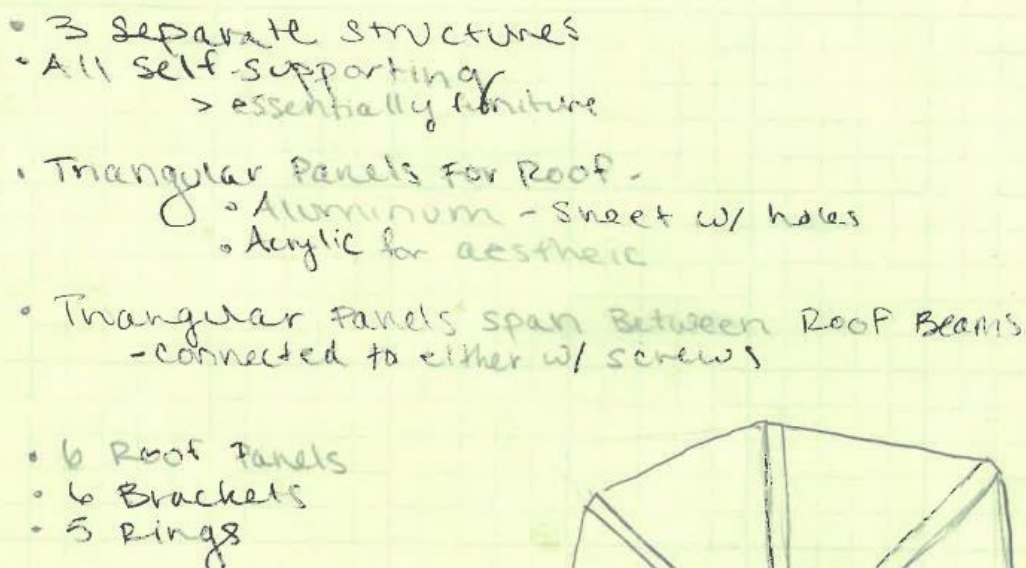 • 3 Separate structures
• All self-supporting
> essentially furniture
• Triangular Panels For Roof -
• Aluminum - Sheet w/ holes
• Acrylic for aestheic
• Triangular Panels span Between Roof Beams
- connected to either w/ screws
• 6 Roof Panels
• 6 Brackets
• 5 Rings